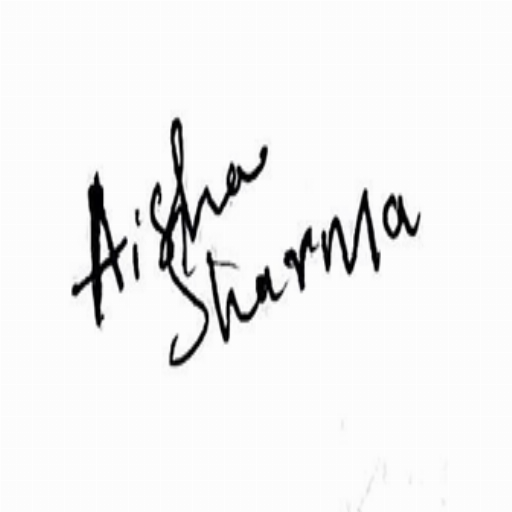 Aisha
Sharma